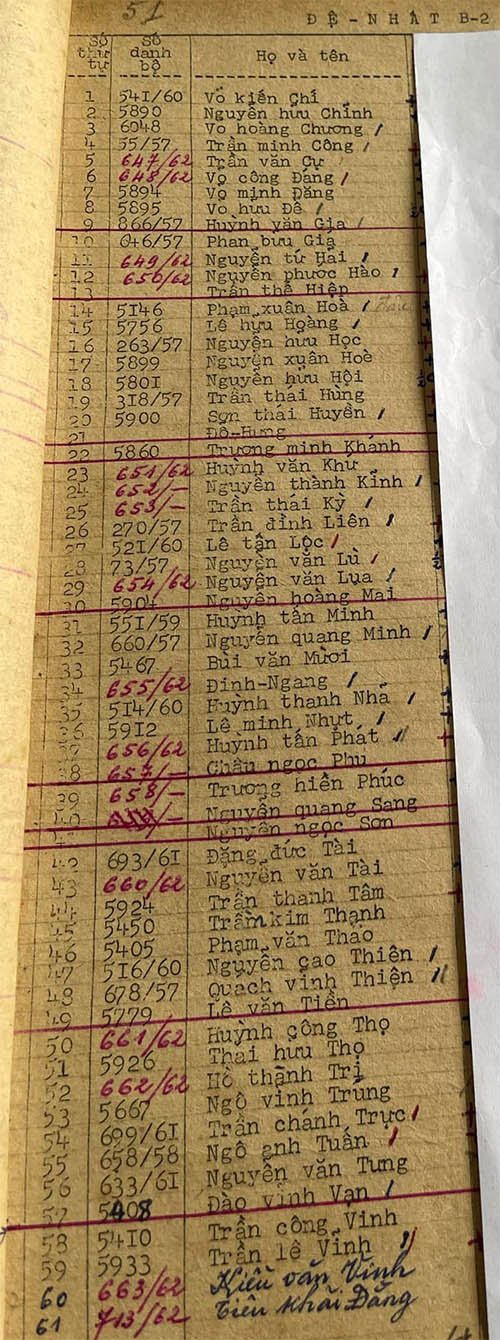 51
ĐỆ-NHẤT B-2
Số thứ tự Số danh bộ Họ và tên
1 541/60 Võ kiến Chí
2 5890 Nguyễn hữu Chính
3 6048 Võ hoàng Chương /
4 55/57 Trần minh Công /
5 647/62 Trần văn Cự
6 648/62 Võ công Đáng /
7 5894 Võ minh Đăng
8 5895 Võ hưu Đễ /
9 866/57 Huỳnh văn Gia /
10 046/57 Phan bưu Gia
11 649/62 Nguyễn tứ Hải /
12 650/62 Nguyễn phước Hào /
13 Trần thế Hiệp
14 5146 Phạm xuân Hoà /
15 5756 Lê hựu Hoàng /
16 263/57 Nguyễn hưu Học
17 5899 Nguyễn xuân Hoè
18 5801 Nguyễn hữu Hội
19 318/57 Trần thái Hùng
20 5900 Sơn thái Huyền /
21 Đô-Hưng
22 5860 Trương minh Khánh
23 651/62 Huỳnh văn Khư
24 652/- Nguyễn thành Kỉnh /
25 653/- Trần thái Kỳ /
26 270/57 Trần đình Liên /
27 521/60 Lê tấn Lộc /
28 73/57 Nguyễn văn Lù /
29 654/62 Nguyễn văn Lụa /
30 5904 Nguyễn hoàng Mai
31 551/59 Huỳnh tấn Minh
32 660/57 Nguyễn quang Minh /
33 5467 Bùi văn Mười
34 655/62 Đinh-Ngang /
35 514/60 Huỳnh thanh Nhã /
36 5912 Lê minh Nhựt /
37 656/62 Huỳnh tấn Phát //
38 657/- Châu ngọc Phu
39 658/- Trương hiền Phúc
40 Nguyễn quang Sang
41 Nguyễn ngọc Sơn
42 693/61 Đặng đức Tài
43 660/62 Nguyễn văn Tài
44 5924 Trần thanh Tâm
45 5450 Trầm kim Thạnh
46 5405 Phạm văn Thảo
47 516/60 Nguyễn cao Thiên /
48 678/57 Quách vinh Thiện //
49 5779 Lê văn Tiền
50 661/62 Huỳnh công Thọ
51 5926 Thái hưu Thọ
52 662/62 Hồ thành Trị
53 5667 Ngô vinh Trung
54 699/61 Trần chánh Trực /
55 658/58 Ngô anh Tuấn /
56 633/61 Nguyễn văn Tưng
57 5408 Đào vinh Vạn /
58 5410 Trần công Vinh
59 5933 Trần lê Vinh //
60 663/62 Kiều văn Vinh
61 713/62 Tiêu khải Đăng